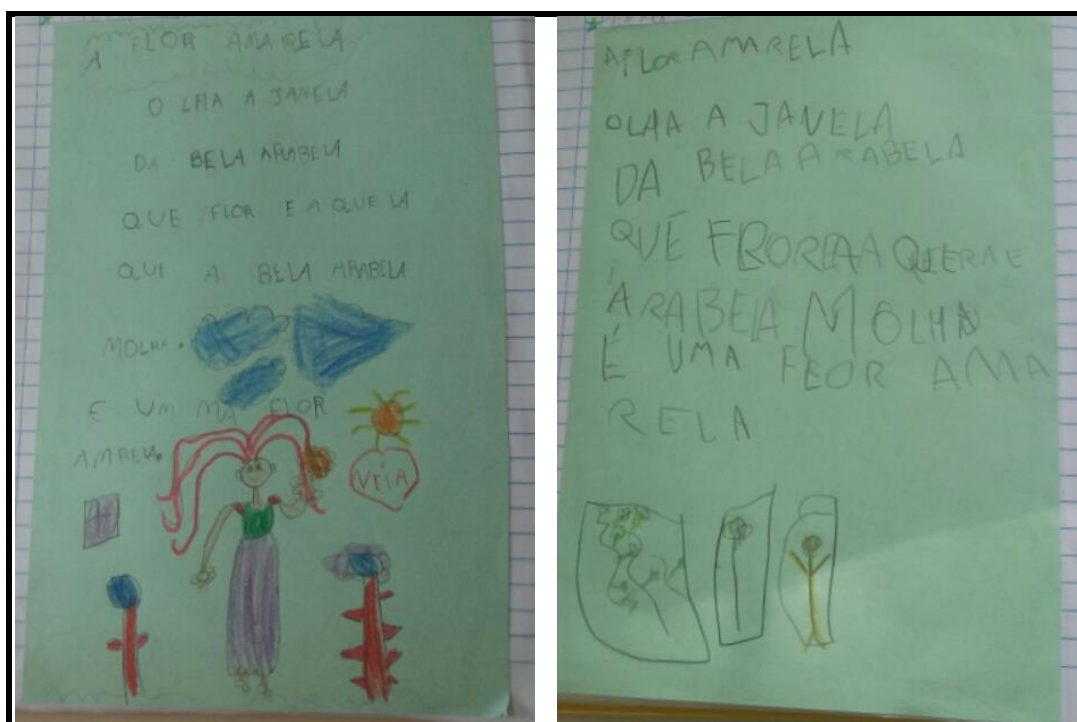 A FLOR AMARELA
O LHA A JANELA
DA BELA ARABELA
QUE FLOR E A QUE LA
QUE A BELA ARABELA
MOLHA.
E UM MA FLOR
AMRELA.
VEIA
A FLOR AMARELA
OLHA A JANELA
DA BELA ARABELA
QUE
ARABELA MOLHA
É UMA FLOR AMA
RELA